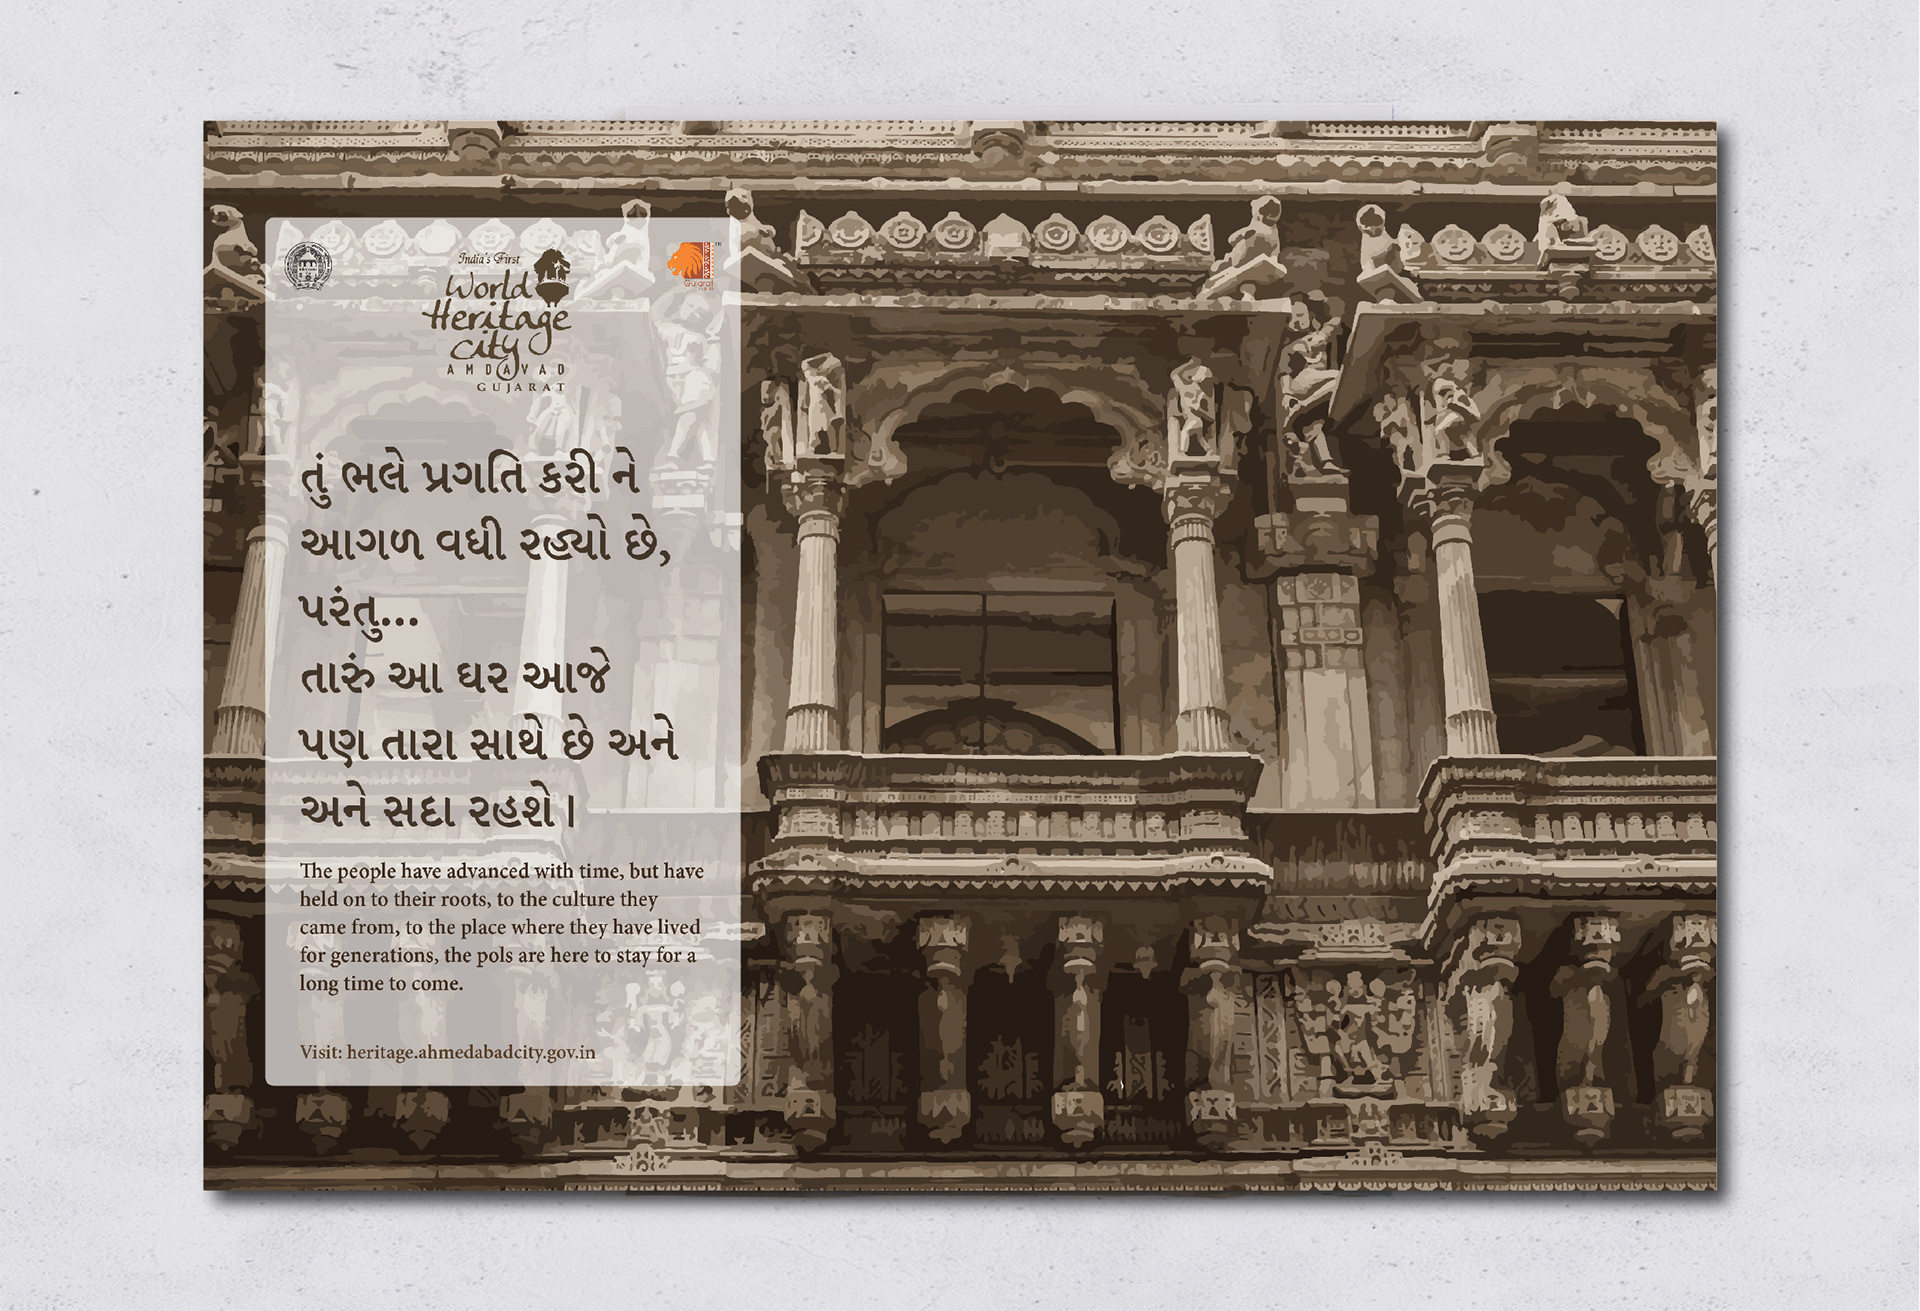 India's First
World
Heritage
city
AMDAVAD
GUJARAT
Gujarat
તું ભલે પ્રગતિ કરી ને
આગળ વધી રહ્યો છે,
પરંતુ...
તારું આ ઘર આજે
પણ તારા સાથે છે અને
અને સદા રહશે |
The people have advanced with time, but have
held on to their roots, to the culture they
came from, to the place where they have lived
for generations, the pols are here to stay for a
long time to come.
Visit: heritage.ahmedabadcity.gov.in